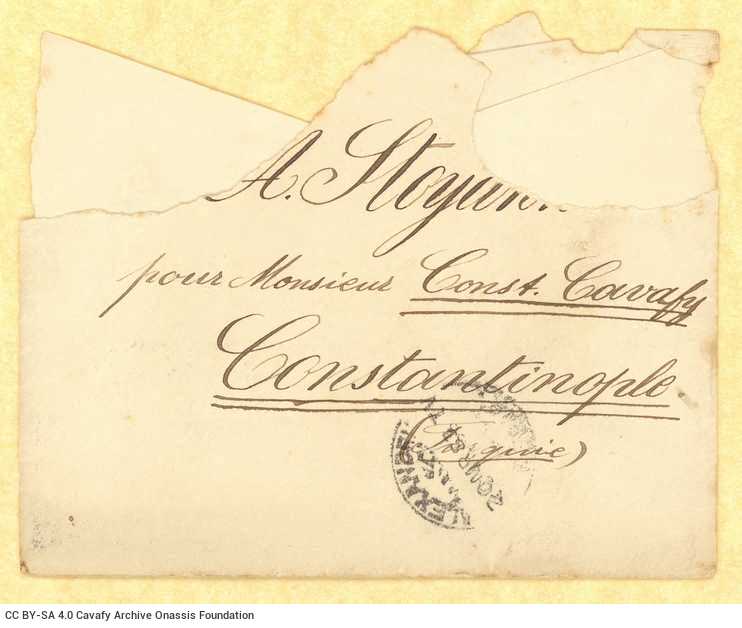 A. Stoyann
pour Monsieur Const. Cavafy
Constantinople
(Turquie)
ALEXANDR
CC BY-SA 4.0 Cavafy Archive Onassis Foundation